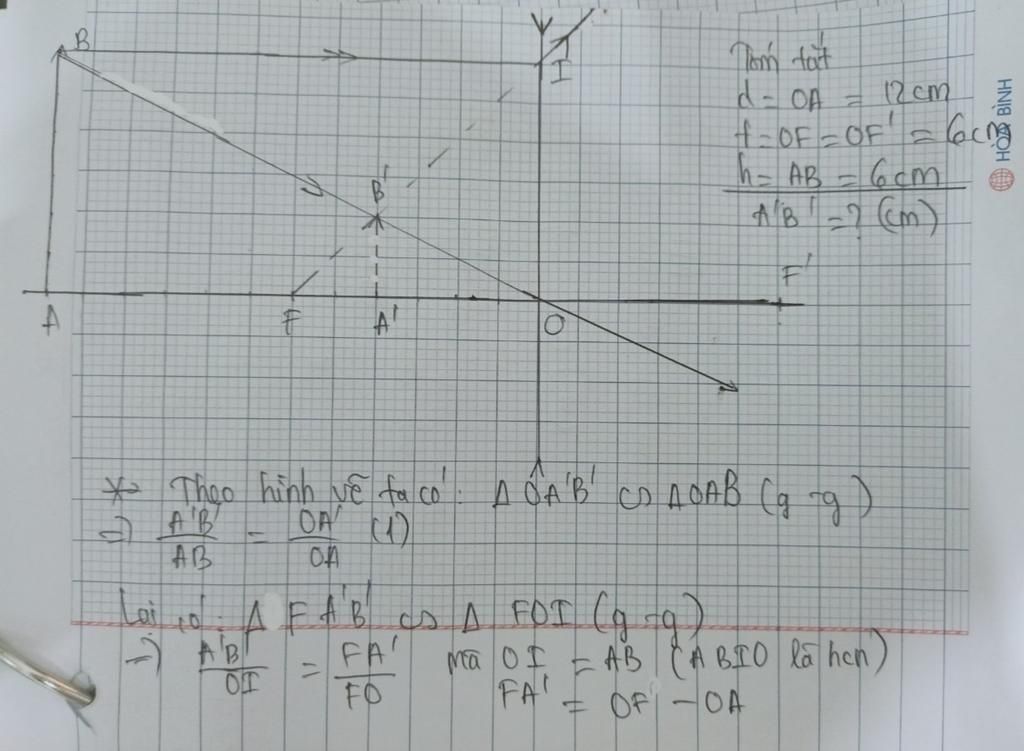 B
I
Tóm tắt
d = OA = 12cm
f = OF = OF' = 6cm
h = AB = 6cm
A'B' = ? (cm)
HÒA BÌNH
B'
F'
A
F
A'
O
* Theo hình vẽ ta có: Δ OA'B' ∽ ΔOAB (g-g)
=> A'B'/AB = OA'/OA (1)
Lại có: Δ FA'B' ∽ Δ FOI (g-g)
=> A'B'/OI = FA'/FO mà OI = AB (ABIO là hcn)
FA' = OF - OA